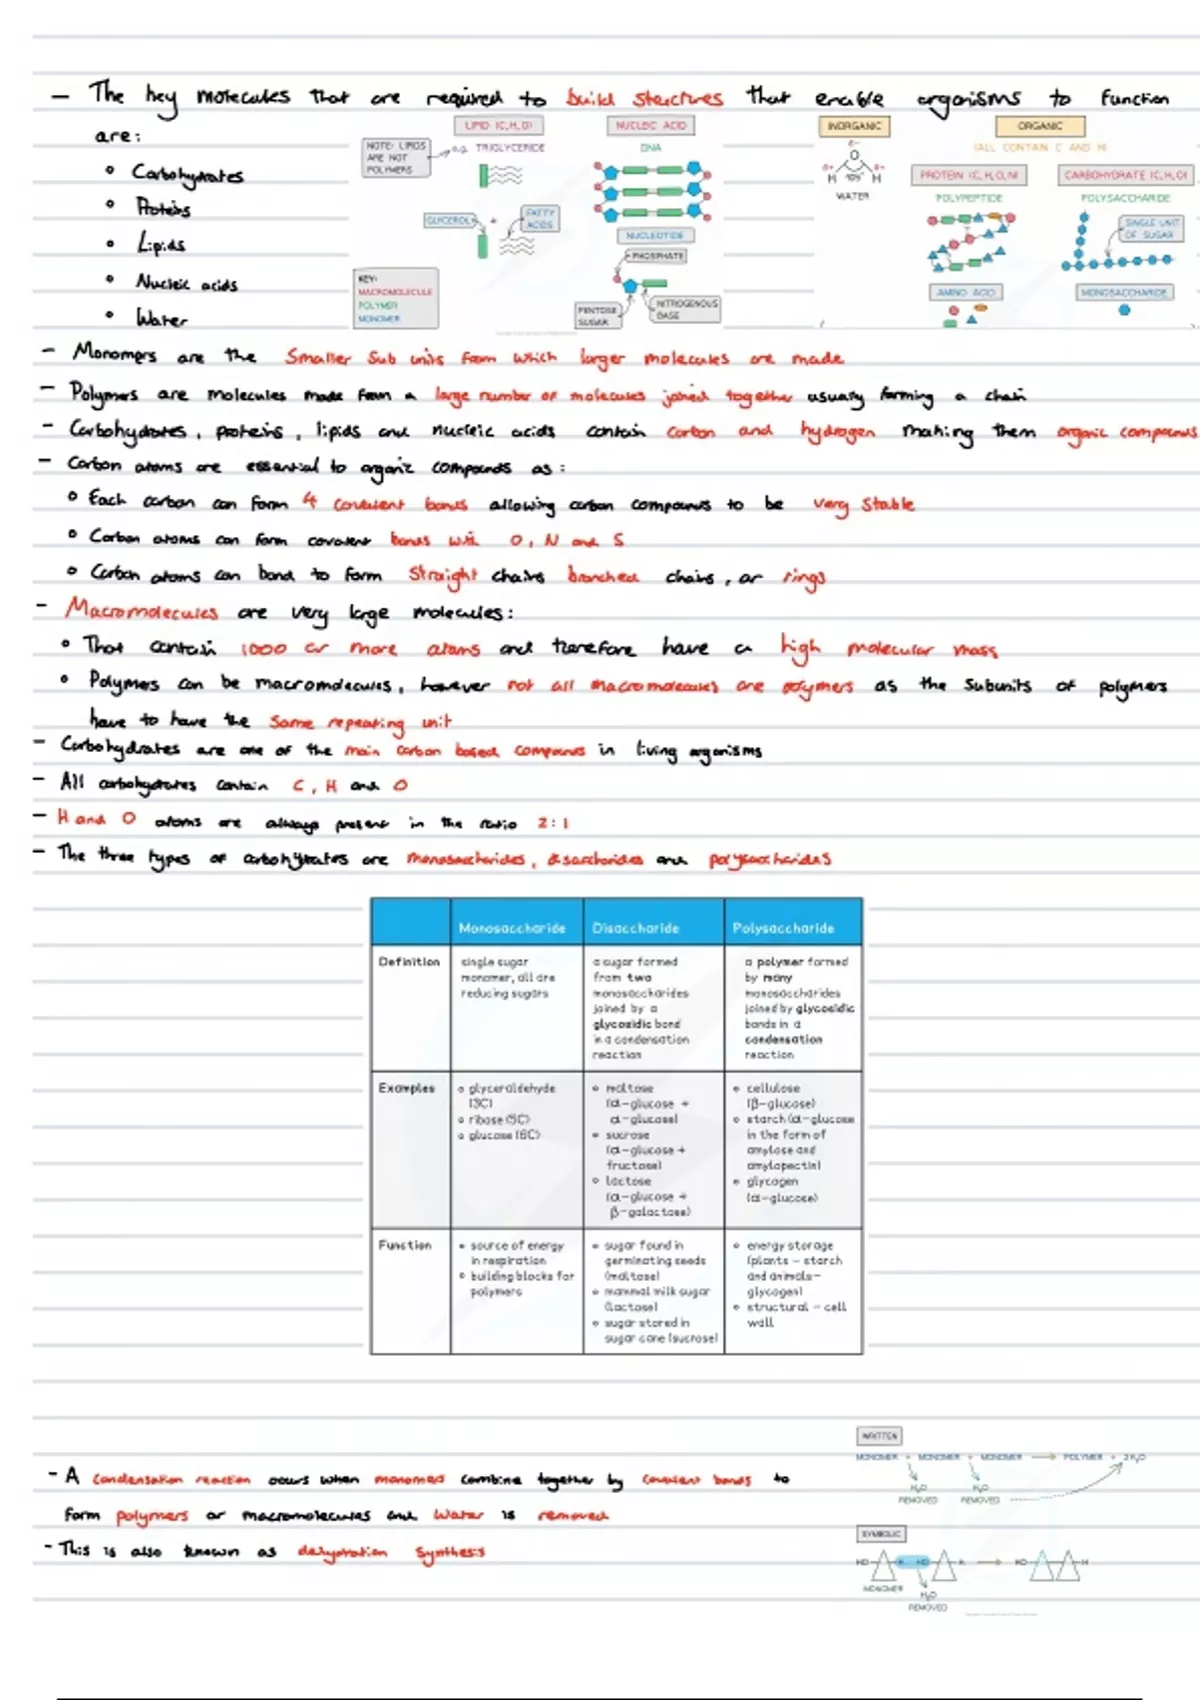 - The key molecules that are required to build structures that enable organisms to function
are:
• Carbohydrates
• Proteins
• Lipids
• Nucleic acids
• Water
NOTE: LIPIDS
ARE NOT
POLYMERS
LIPID (C, H, O)
e.g. TRIGLYCERIDE
GLYCEROL
+
FATTY
ACIDS
KEY:
MACROMOLECULE
POLYMER
MONOMER
NUCLEIC ACID
DNA
NUCLEOTIDE
PHOSPHATE
PENTOSE
SUGAR
NITROGENOUS
BASE
INORGANIC
O
H H
WATER
ORGANIC
(ALL CONTAIN C AND H)
PROTEIN (C, H, O, N)
POLYPEPTIDE
AMINO ACID
CARBOHYDRATE (C, H, O)
POLYSACCHARIDE
SINGLE UNIT
OF SUGAR
MONOSACCHARIDE
- Monomers are the smaller sub units from which larger molecules are made
- Polymers are molecules made from a large number of molecules joined together usually forming a chain
- Carbohydrates, proteins, lipids and nucleic acids contain carbon and hydrogen making them organic compounds
- Carbon atoms are essential to organic compounds as:
• Each carbon can form 4 covalent bonds allowing carbon compounds to be very stable
• Carbon atoms can form covalent bonds with O, N and S
• Carbon atoms can bond to form straight chains branched chains, or rings
- Macromolecules are very large molecules:
• That contain 1000 or more atoms and therefore have a high molecular mass
• Polymers can be macromolecules, however not all macromolecules are polymers as the subunits of polymers
have to have the same repeating unit
- Carbohydrates are one of the main carbon based compounds in living organisms
- All carbohydrates contain C, H and O
- H and O atoms are always present in the ratio 2:1
- The three types of carbohydrates are monosaccharides, disaccharides and polysaccharides
Monosaccharide Disaccharide Polysaccharide
Definition
single sugar
monomer, all are
reducing sugars
a sugar formed
from two
monosaccharides
joined by a
glycosidic bond
in a condensation
reaction
a polymer formed
by many
monosaccharides
joined by glycosidic
bonds in a
condensation
reaction
Examples
• glyceraldehyde
(3C)
• ribose (5C)
• glucose (6C)
• maltose
(α-glucose +
α-glucose)
• sucrose
(α-glucose +
fructose)
• lactose
(α-glucose +
β-galactose)
• cellulose
(β-glucose)
• starch (α-glucose
in the form of
amylose and
amylopectin)
• glycogen
(α-glucose)
Function
• source of energy
in respiration
• building blocks for
polymers
• sugar found in
germinating seeds
(maltose)
• mammal milk sugar
(lactose)
• sugar stored in
sugar cane (sucrose)
• energy storage
(plants - starch
and animals-
glycogen)
• structural - cell
wall
- A condensation reaction occurs when monomers combine together by covalent bonds to
form polymers or macromolecules and water is removed
- This is also known as dehydration synthesis
WRITTEN
MONOMER + MONOMER + MONOMER → POLYMER + 2H₂O
H₂O H₂O
REMOVED REMOVED
SYMBOLIC
MONOMER
H₂O
REMOVED